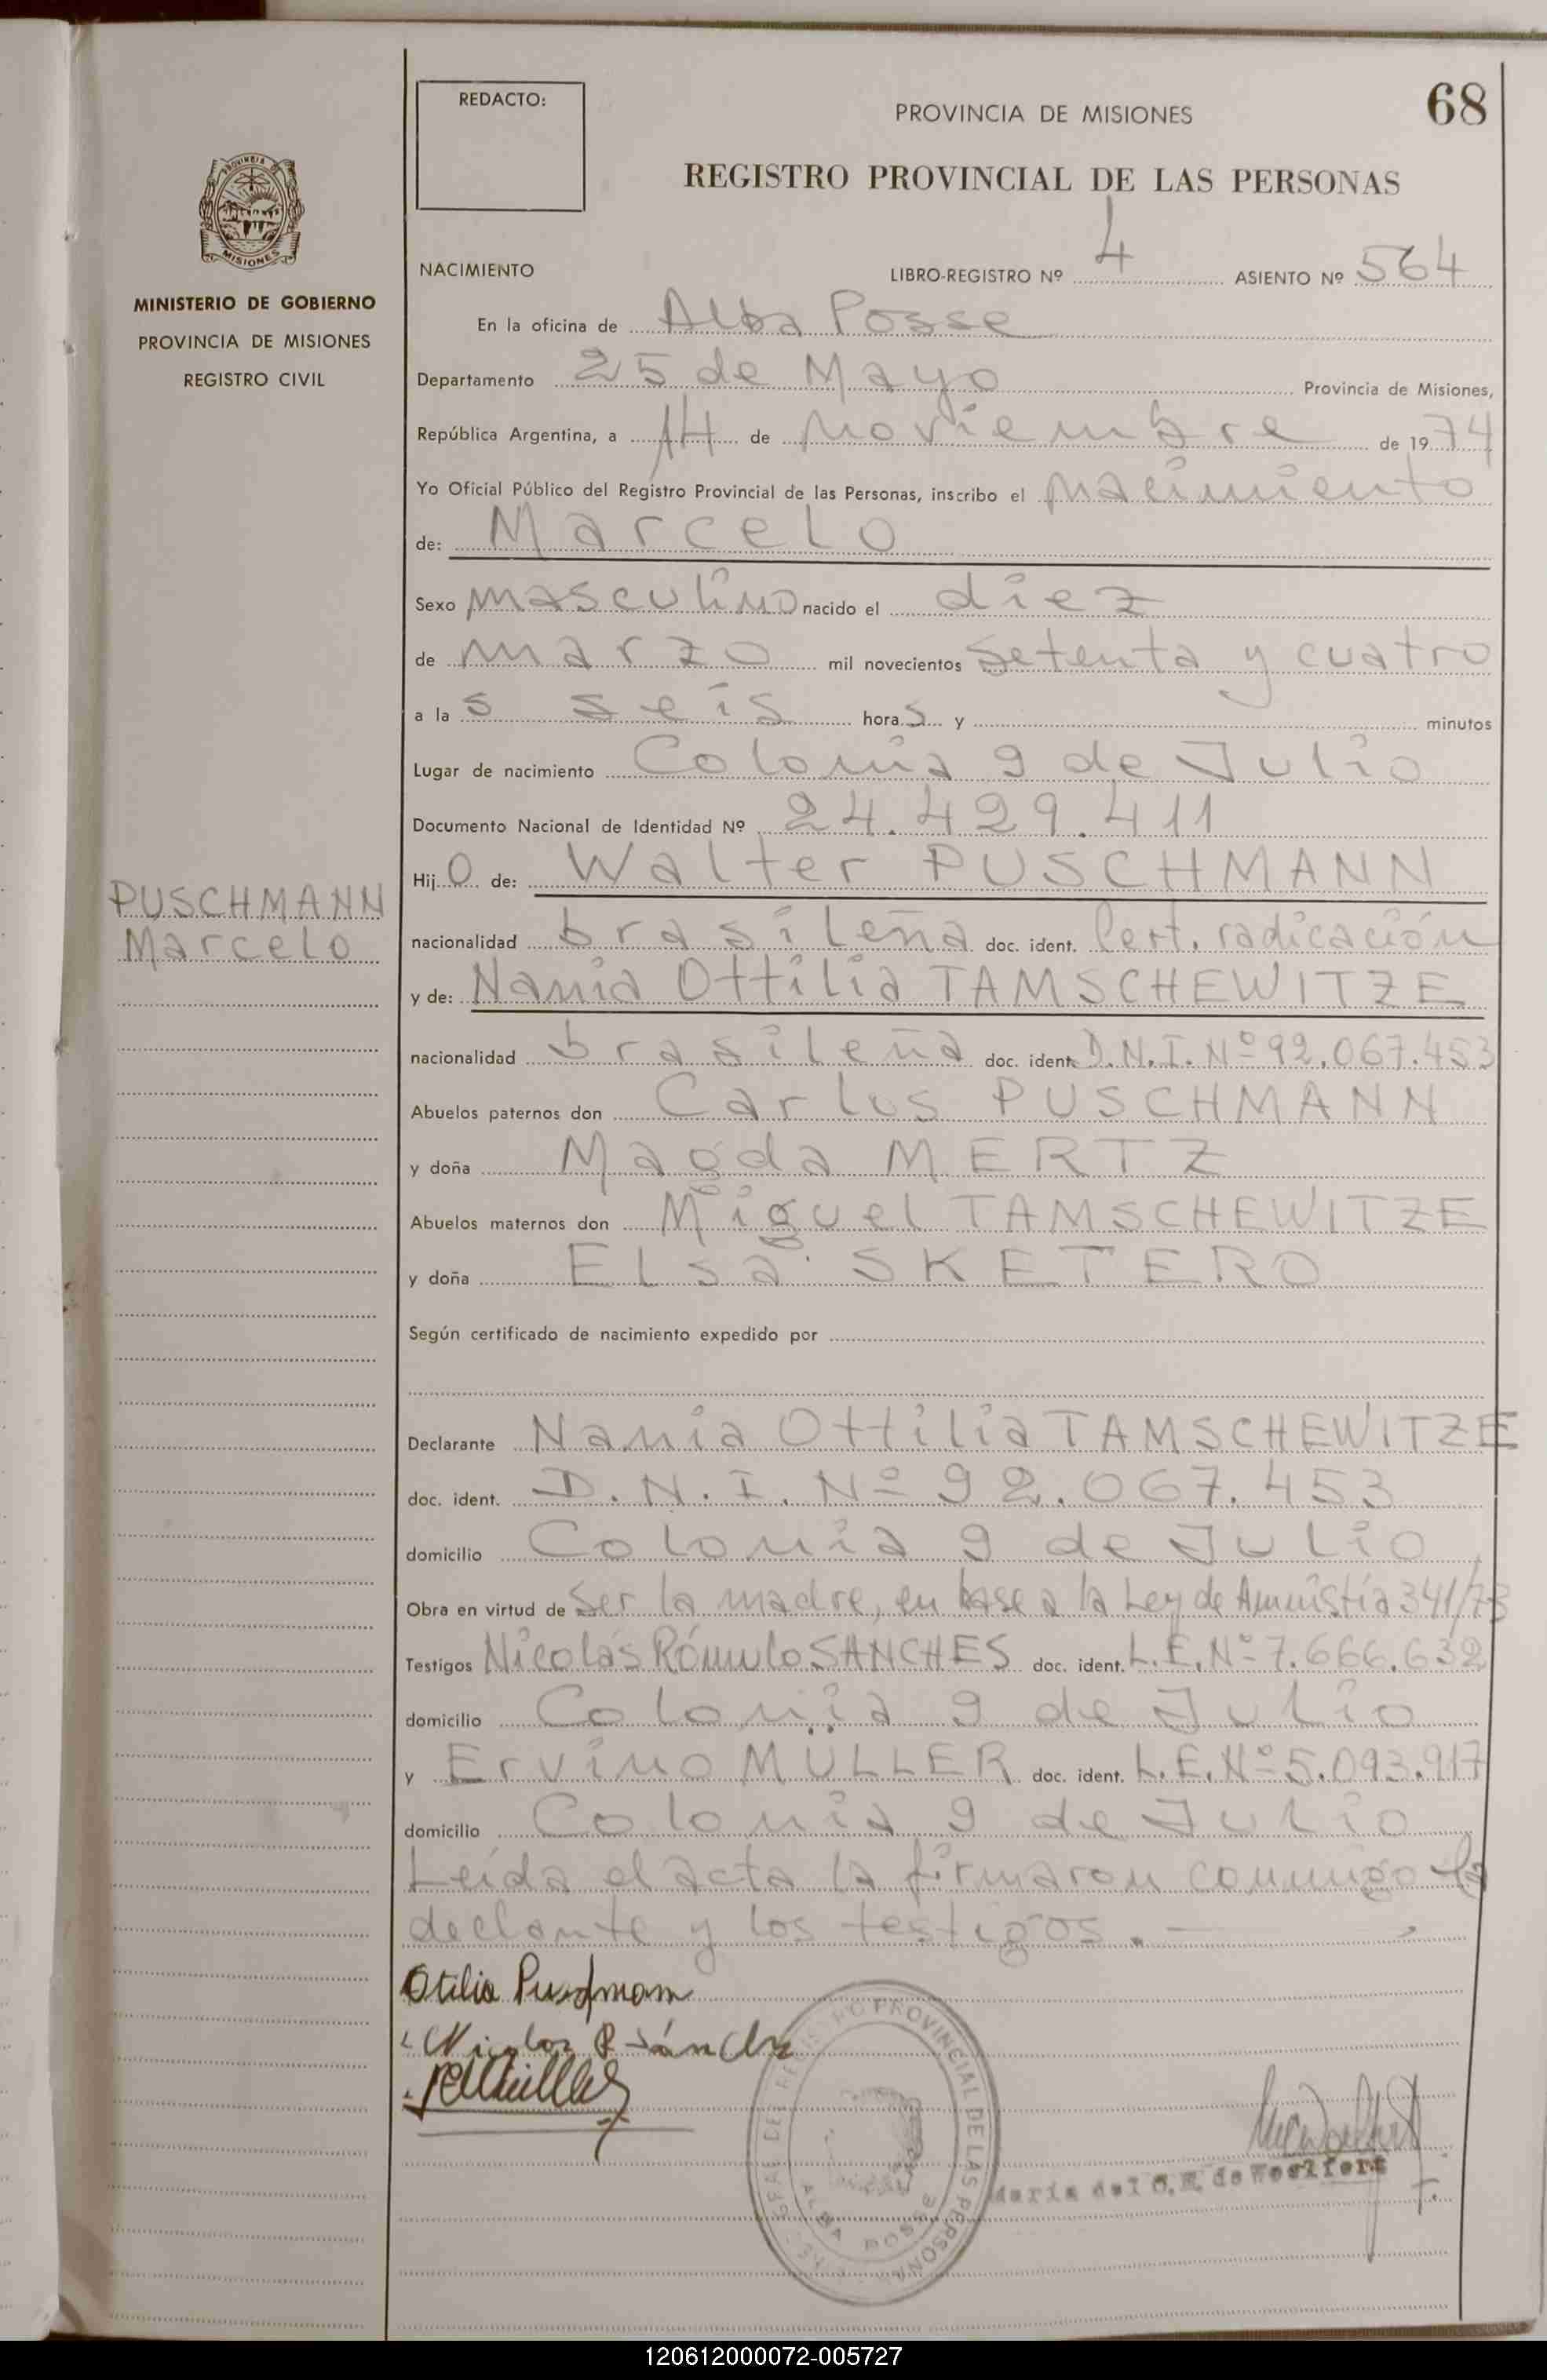 68
REDACTO:
PROVINCIA DE MISIONES
REGISTRO PROVINCIAL DE LAS PERSONAS
MISIONES
MINISTERIO DE GOBIERNO
PROVINCIA DE MISIONES
REGISTRO CIVIL
NACIMIENTO LIBRO-REGISTRO Nº 4 ASIENTO Nº 564
En la oficina de Alba Posse
Departamento 25 de Mayo Provincia de Misiones,
República Argentina, a 14 de noviembre de 1974
Yo Oficial Público del Registro Provincial de las Personas, inscribo el nacimiento
de: Marcelo
Sexo masculino nacido el diez
de marzo mil novecientos setenta y cuatro
a la s seis hora s y minutos
Lugar de nacimiento Colonia 9 de Julio
Documento Nacional de Identidad Nº 24.429.411
Hij o de: Walter PUSCHMANN
PUSCHMANN
Marcelo
nacionalidad brasileña doc. ident. Cert. radicación
y de: Nania Ottilia TAMSCHEWITZE
nacionalidad brasileña doc. ident. D.N.I. Nº 92.067.453
Abuelos paternos don Carlos PUSCHMANN
y doña Magda MERTZ
Abuelos maternos don Miguel TAMSCHEWITZE
y doña Elsa SKETERO
Según certificado de nacimiento expedido por
Declarante Nania Ottilia TAMSCHEWITZE
doc. ident. D.N.I. Nº 92.067.453
domicilio Colonia 9 de Julio
Obra en virtud de ser la madre, en base a la Ley de Amnistía 341/73
Testigos Nicolás Rómulo SANCHES doc. ident. L.E. Nº 7.666.632
domicilio Colonia 9 de Julio
y Ervino MÜLLER doc. ident. L.E. Nº 5.093.917
domicilio Colonia 9 de Julio
Leída el acta la firmaron conmigo la
declante y los testigos.
Otilia
Nicolas R Sánche
REGISTRO PROVINCIAL DE LAS PERSONAS
ALBA POSSE
Maria del C. de Woelfert
120612000072-005727